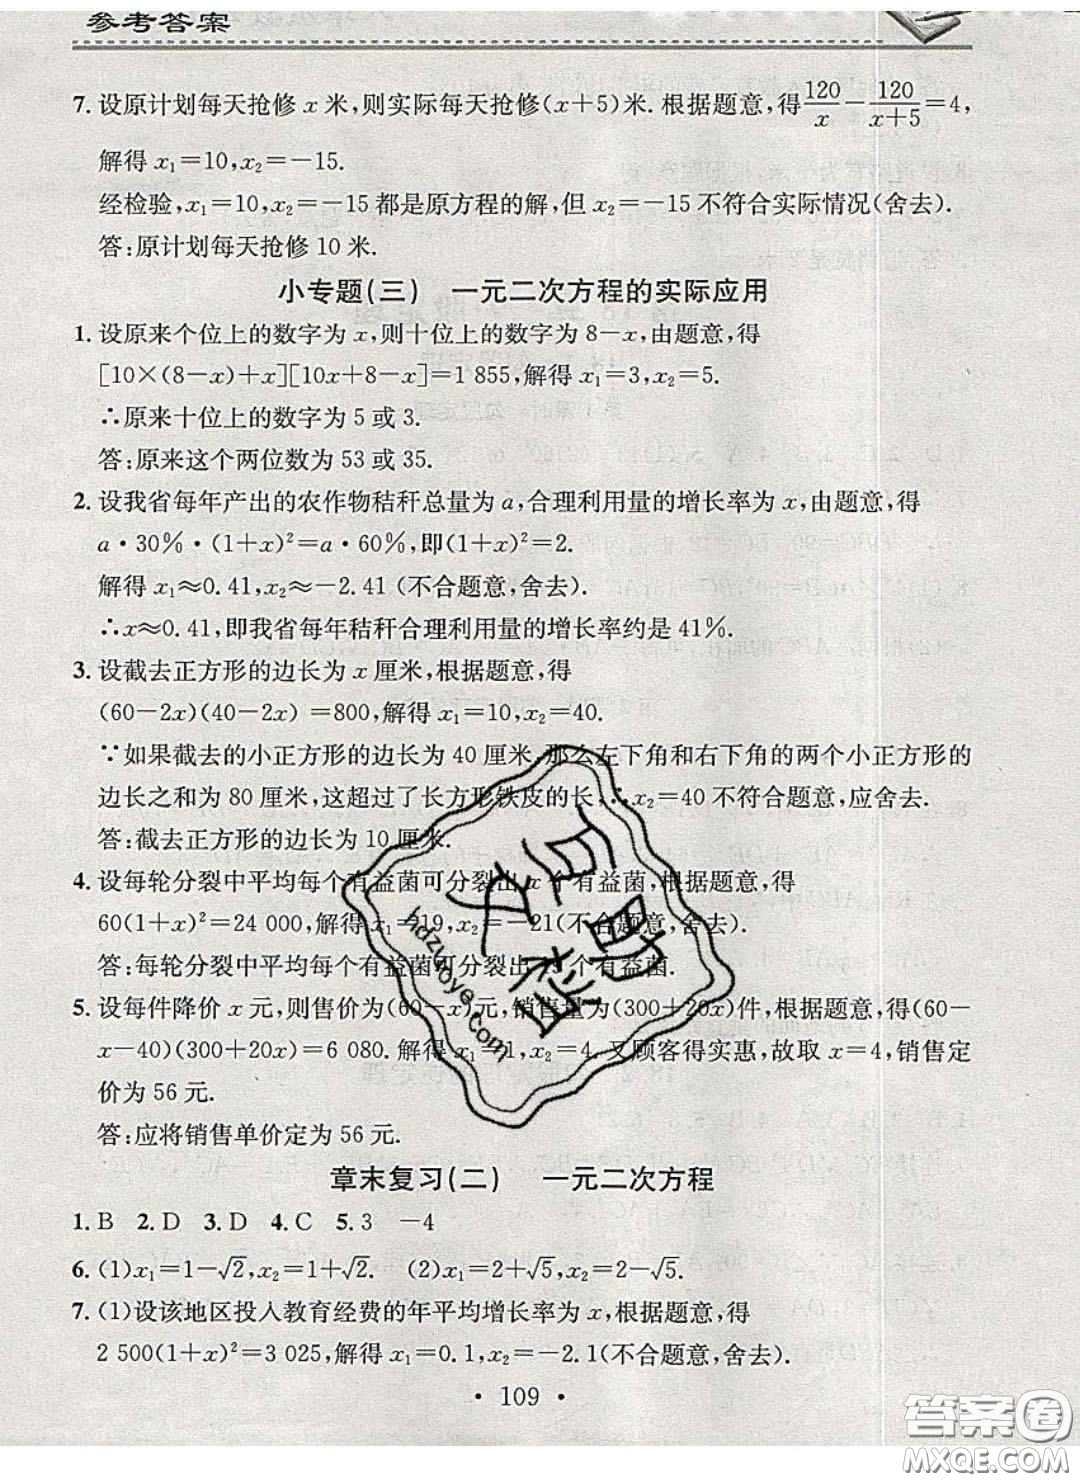 参考答案
7. 设原计划每天抢修 x 米,则实际每天抢修(x+5)米. 根据题意,得120/x-120/(x+5)=4,
解得 x₁=10,x₂=-15.
经检验,x₁=10,x₂=-15 都是原方程的解,但 x₂=-15 不符合实际情况(舍去).
答:原计划每天抢修 10 米.
小专题(三) 一元二次方程的实际应用
1. 设原来个位上的数字为 x,则十位上的数字为 8-x,由题意,得
[10×(8-x)+x][10x+8-x]=1 855,解得 x₁=3,x₂=5.
∴原来十位上的数字为 5 或 3.
答:原来这个两位数为 53 或 35.
2. 设我省每年产出的农作物秸秆总量为 a,合理利用量的增长率为 x,由题意,得
a·30%·(1+x)²=a·60%,即(1+x)²=2.
解得 x₁≈0.41,x₂≈-2.41 (不合题意,舍去).
∴x≈0.41,即我省每年秸秆合理利用量的增长率约是 41%.
3. 设截去正方形的边长为 x 厘米,根据题意,得
(60-2x)(40-2x) =800,解得 x₁=10,x₂=40.
∵如果截去的小正方形的边长为 40 厘米,那么左下角和右下角的两个小正方形的
边长之和为 80 厘米,这超过了长方形铁皮的长,∴x₂=40 不符合题意,应舍去.
答:截去正方形的边长为 10 厘米.
4. 设每轮分裂中平均每个有益菌可分裂出 x 个有益菌,根据题意,得
60(1+x)²=24 000,解得 x₁=19,x₂=-21(不合题意,舍去).
答:每轮分裂中平均每个有益菌可分裂出 19 个有益菌.
5. 设每件降价 x 元,则售价为(60-x)元,销售量为(300+20x)件,根据题意,得(60-
x-40)(300+20x)=6 080. 解得 x₁=1,x₂=4. 又顾客得实惠,故取 x=4,销售定
价为 56 元.
答:应将销售单价定为 56 元.
章末复习(二) 一元二次方程
1. B 2. D 3. D 4. C 5. 3 -4
6. (1)x₁=1-√2,x₂=1+√2. (2)x₁=2+√5,x₂=2-√5.
7. (1)设该地区投入教育经费的年平均增长率为 x,根据题意,得
2 500(1+x)²=3 025,解得 x₁=0.1,x₂=-2.1(不合题意,舍去).
· 109 ·
hdzuoye.com
答案圈
MXQE.COM